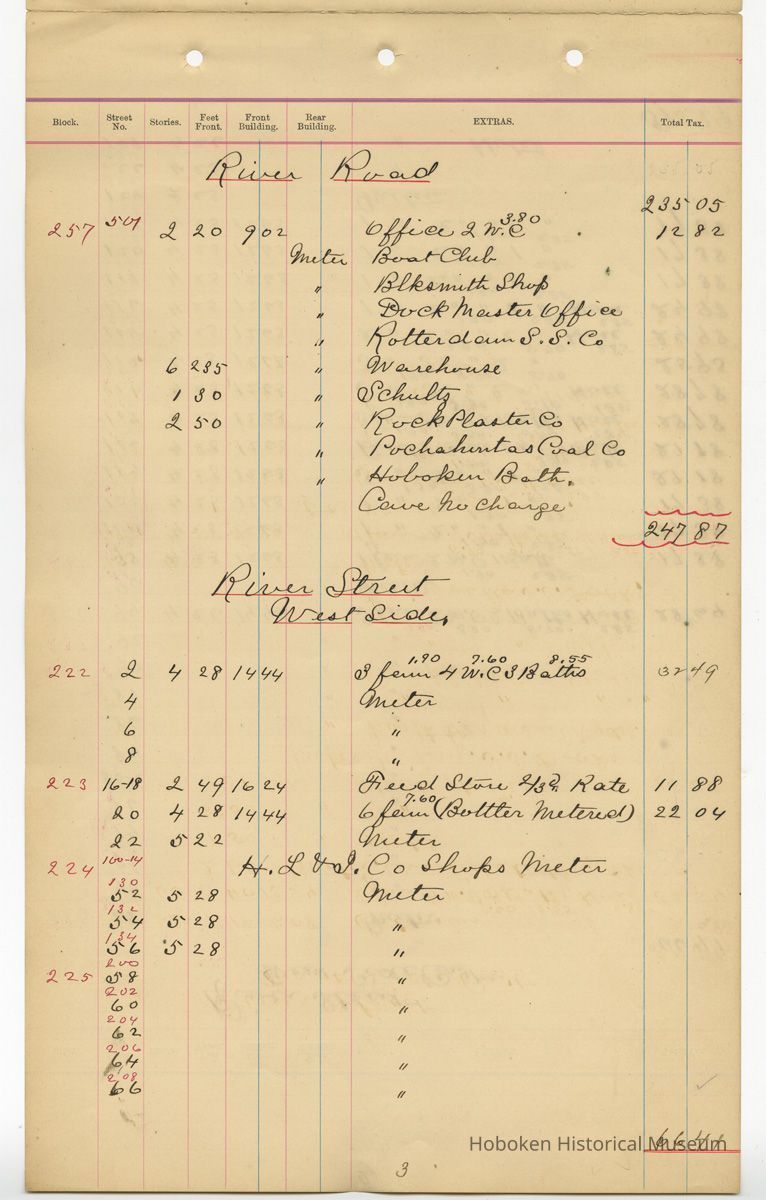 Block. Street No. Stories. Feet Front. Front Building. Rear Building. EXTRAS. Total Tax.
River Road
235 05
257 501 2 20 9 02 Office 2 W.C 3.80 12 82
Meter Boat Club
" Blksmith Shop
" Dock Master Office
" Rotterdam S.S. Co
6 235 " Warehouse
1 30 " Schultz
2 50 " Rock Plaster Co
" Pochahuntas Coal Co
" Hoboken Bath.
Cave No Charge
247 87
River Street
West Side.
222 2 4 28 14 44 3 fam 1.90 4 W.C 7.60 3 Baths 8.55 32 49
4 Meter
6 "
8 "
223 16-18 2 49 16 24 Feed Store 2/3ds Rate 11 88
20 4 28 14 44 6 fam 7.60 (Bottler Metered) 22 04
22 5 22 Meter
224 100-14 H. L & I. Co Shops Meter
130
52 5 28 Meter
132
54 5 28 "
134
56 5 28 "
200
225 58 "
202
60 "
204
62 "
206
64 "
208
66 "
Hoboken Historical Museum
3